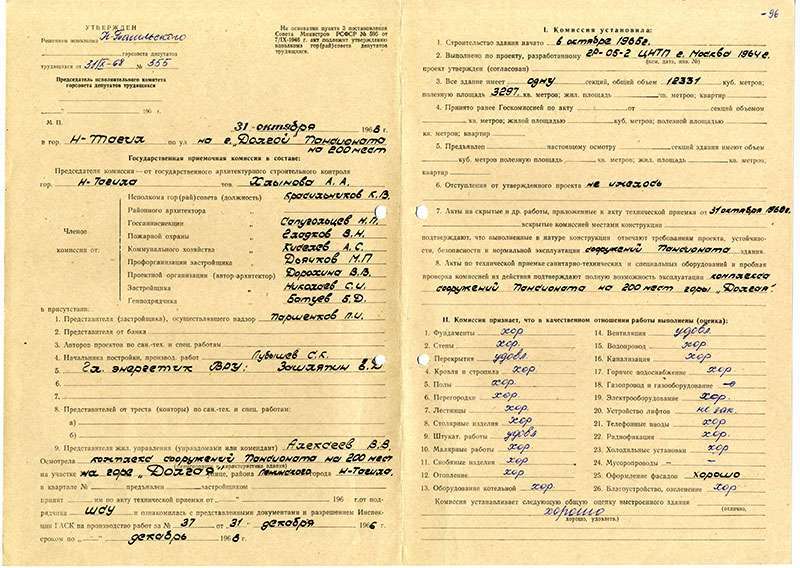 УТВЕРЖДЕН
Решением исполкома Н-Тагильского
горсовета депутатов
трудящихся от 31/IX-68 № 555
Председатель исполнительного комитета
горсовета депутатов трудящихся
196 г.
М. П.
На основании пункта 3 постановления
Совета Министров РСФСР № 595 от
7/IX-1946 г. акт подлежит утверждению
исполкома гор(рай)совета депутатов
трудящихся.
31 октября 1968 г.
в гор. Н-Тагил по ул на г. „Долгой" Пансионата
на 200 мест
Государственная приемочная комиссия в составе:
Председателя комиссии — от государственного архитектурного строительного контроля
гор. Н-Тагила тов. Хлынова А. А.
Членов
комиссии от:
Исполкома гор(рай)совета (должность) Красильников К.В.
Районного архитектора „
Госсанинспекции „ Сапугольцев Н.П.
Пожарной охраны „ Гладков В.Н.
Коммунального хозяйства „ Киселев А.С.
Профорганизации застройщика „ Дьячков М.П
Проектной организации (автор-архитектор) Дорохина В.В.
Застройщика „ Николаев С.И.
Генподрядчика „ Батуев Б.Д.
в присутствии:
1. Представителя (застройщика), осуществлявшего надзор Паршенков П.И.
2. Представителя от банка
3. Авторов проектов по сан.-тех. и спец. работам
4. Начальника постройки, производ. работ Губышев С.К.
5. Гл. энергетик ВРУ:
6.
7.
8. Представителей от треста (конторы) по сан.-тех. и спец. работам:
а)
б)
9. Представителя жил. управления (управдомами или комендант) Алексеев В.В.
Осмотрела комплекс сооружений Пансионата на 200 мест
на участке на горе „Долгая" улице, района Ленинского города Н-Тагила.
в квартале № предъявлен застройщиком
принят им по акту технической приемки от 196 г.от под-
рядчика ШСУ и ознакомилась с представленными документами и разрешением Инспек-
ции ГАСК на производство работ за № 37 от 31 декабря 1966
сроком по декабрь 1968 г.
-96
I. Комиссия установила:
1. Строительство здания начато 6 октября 1965г.
2. Выполнено по проекту, разработанному 2Р-05-2 ЦНТП г. Москва 1964г.
(кем, дата, инв. №)
проект утвержден (согласован)
3. Все здание имеет одну секций, общий объем 12331 куб. метров;
полезную площадь 3297 кв. метров; жил. площадь кв. метров; квартир
4. Принято ранее Госкомиссией по акту от секций объемом
кв. метров; жилой площадью куб. метров; полезной площадью
кв. метров; квартир
5. Предъявлен настоящему осмотру секций здания имеет объем
куб. метров полезную площадь кв. метров; жил. площадь кв. метров;
квартир
6. Отступления от утвержденного проекта не имелось
7. Акты на скрытые и др. работы, приложенные к акту технической приемки от 31 октября 1968г.
вскрытые комиссией местами конструкции
подтверждают, что выполненные в натуре конструкции отвечают требованиям проекта, устойчиво-
сти, безопасности и нормальной эксплуатации сооружений Пансионата здания.
8. Акты по технической приемке санитарно-технических и специальных оборудований и пробная
проверка комиссией их действия подтверждают полную возможность эксплуатации комплекса
сооружений Пансионата на 200 мест горы „Долгая".
II. Комиссия признает, что в качественном отношении работы выполнены (оценка):
1. Фундаменты хор
2. Стены хор.
3. Перекрытия удовл
4. Кровля и стропила хор.
5. Полы хор.
6. Перегородки хор
7. Лестницы хор.
8. Столярные изделия хор.
9. Штукат. работы удовл
10. Малярные работы хор
11. Скобяные изделия хор
12. Отопление хор
13. Оборудование котельной хор.
14. Вентиляция удовл.
15. Водопровод хор.
16. Канализация хор.
17. Горячее водоснабжение хор.
18. Газопровод и газооборудование —
19. Электрооборудование хор.
20. Устройство лифтов
21. Телефонные вводы хор
22. Радиофикация хор.
23. Холодильные установки хор
24. Мусоропроводы —
25. Оформление фасадов хорошо
26. Благоустройство, озеленение хор
Комиссия устанавливает следующую общую оценку выстроенного здания
(отлично,
хорошо
хорошо, удовлетв.)